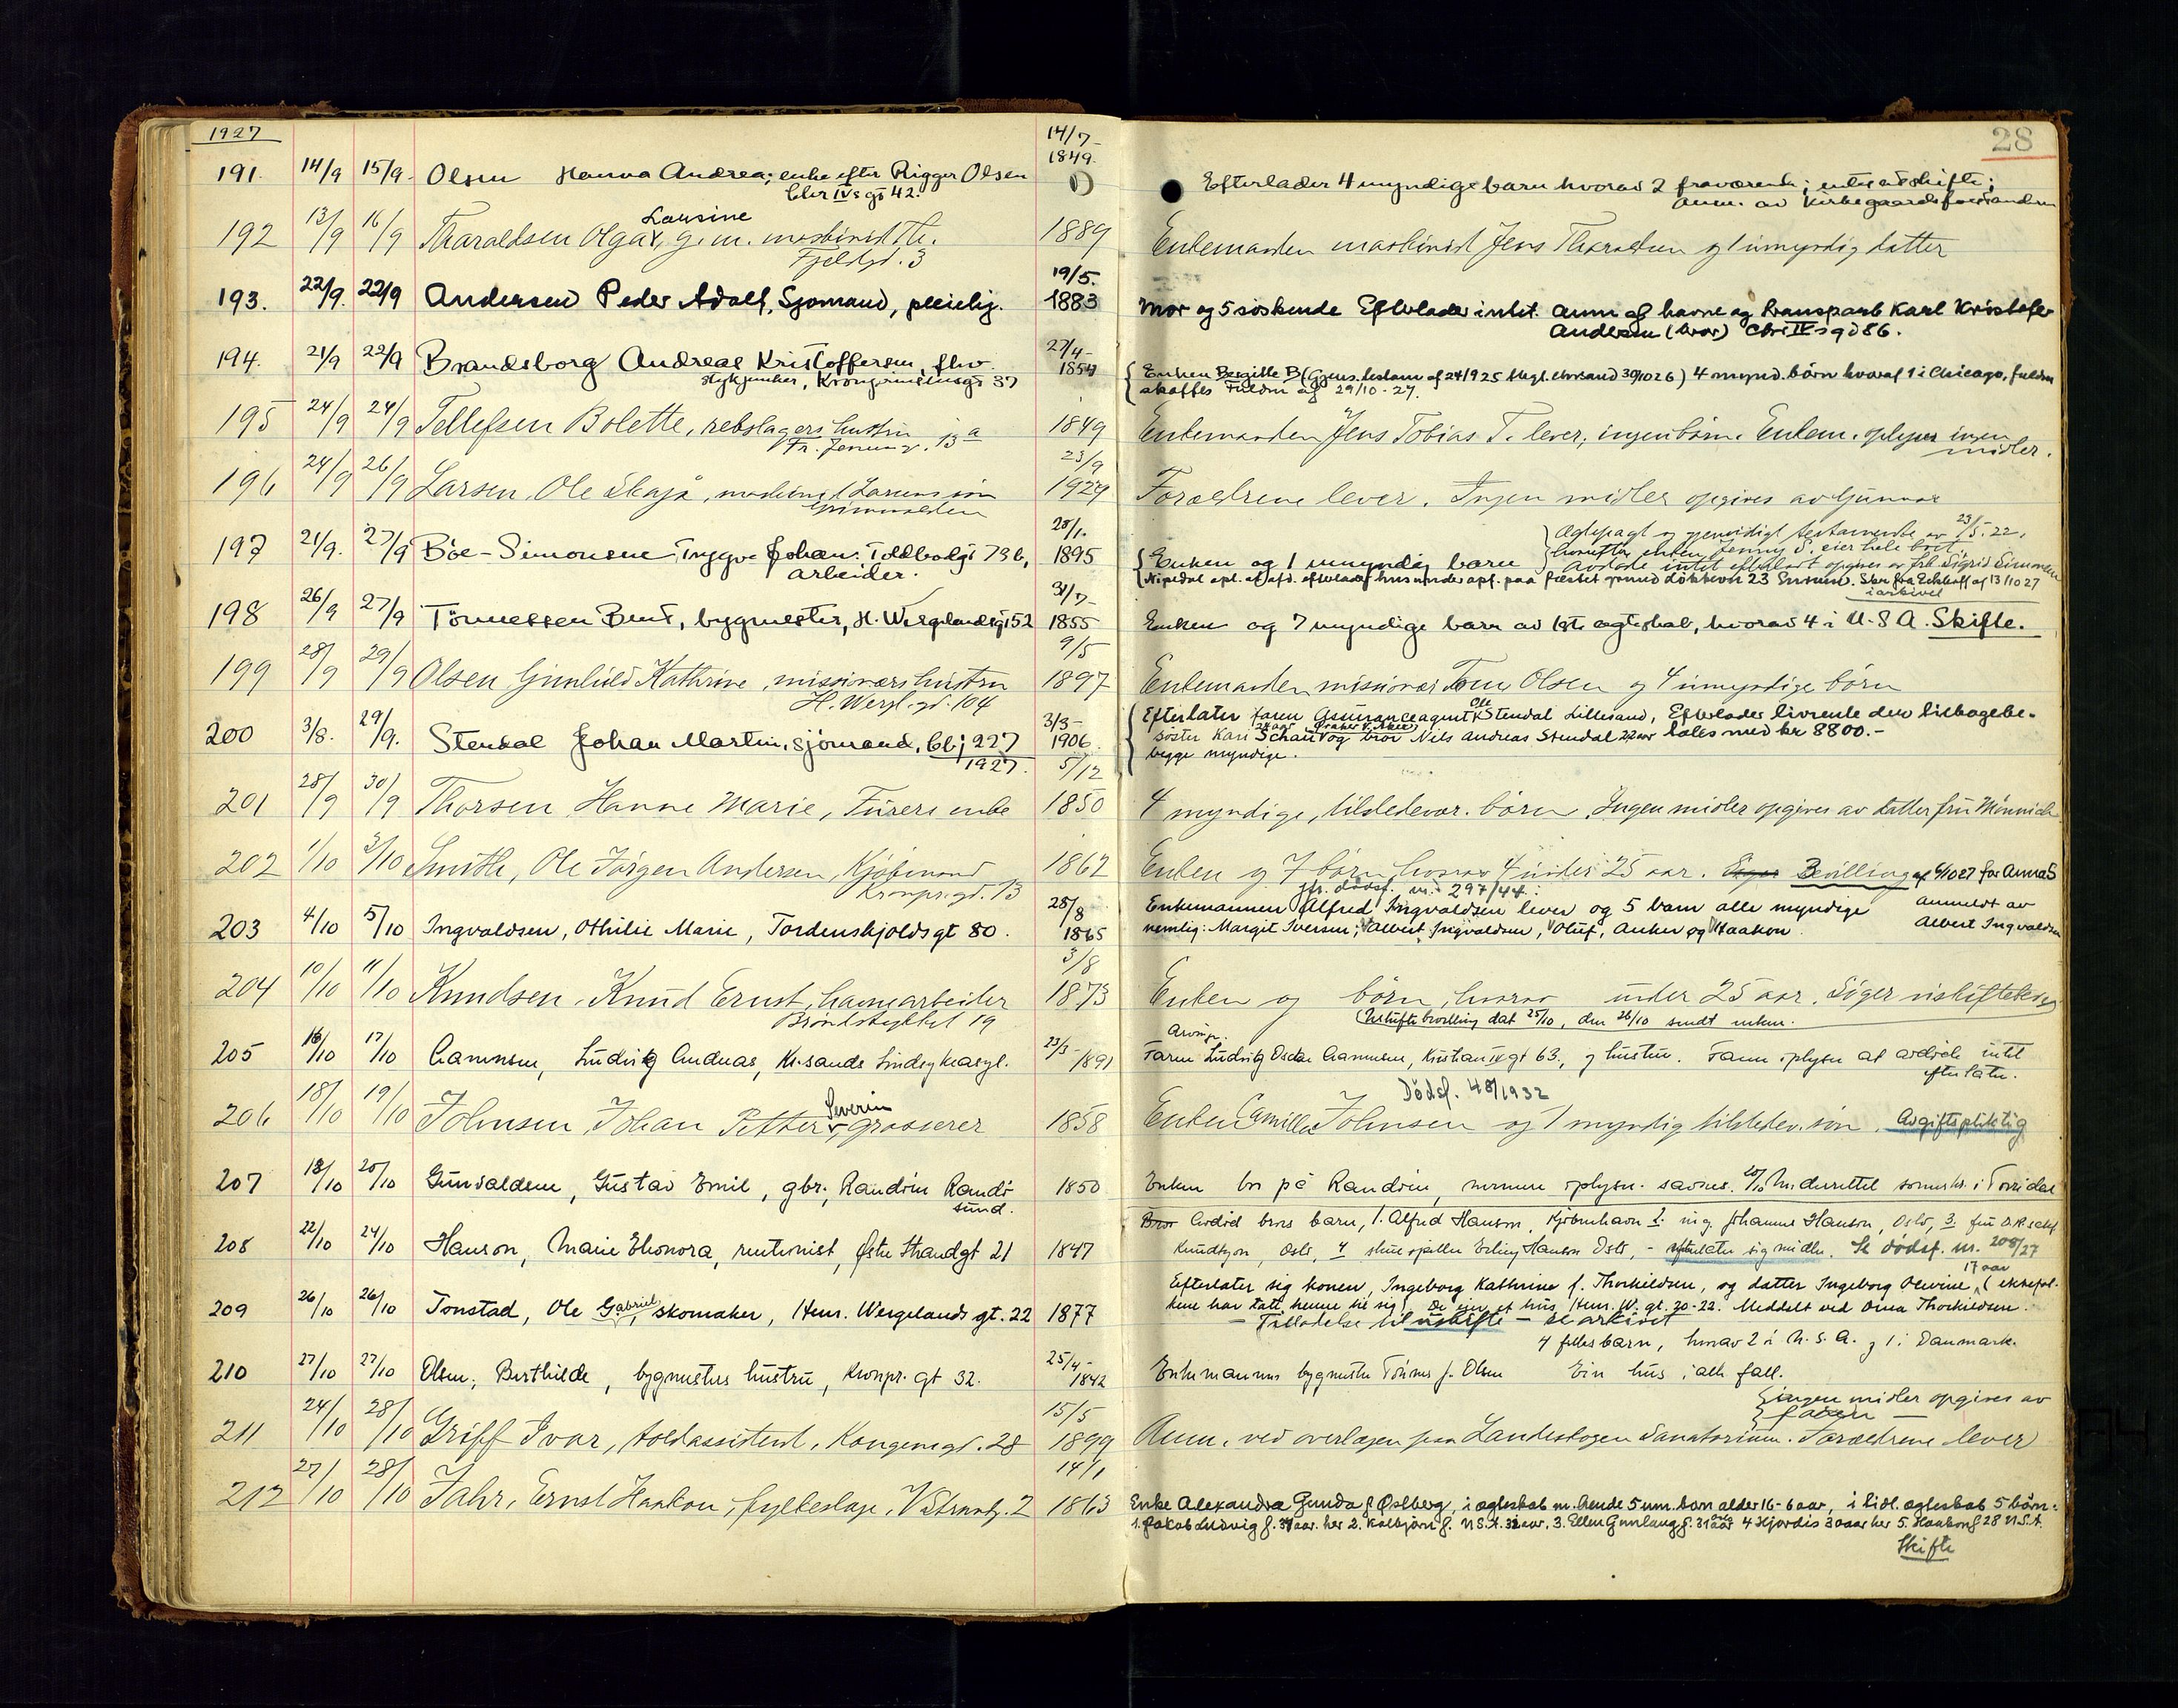 1927
28
191. 14/9 15/9 Olsen Hanna Andrea; enke efter Rigger Olsen 14/7 1849.
Chr IVs gt 42.
Efterlader 4 myndige barn hvorav 2 fraværende; intet at skifte;
Anm. av Kirkegaards
192 13/9 16/9 Tharaldsen Olga Lausine, g. m. maskinist Th. 1889
Fjeldgt. 3
Enkemanden maskinist Jens Tharaldsen og 1 umyndig datter
193. 22/9. 22/9 Andersen Peder Adolf, Sjømand, pleielig. 19/5. 1883
Mor og 5 søskende Efterlader intet. Anm af havne og transparb Karl Kristofer
Andersen (bror) Chr IVs gt 86.
194. 21/9 22/9 Brandsborg Andreas Kristoffersen, fhv. 27/4-
stykjunker, Kronprinsensgt 37
Enken Bergitte B (Gjens. testam af 24/9 25 tingl. Chrsand 30/10 26) 4 mynd. børn hvoraf 1 i Chicago, fuldm
skaffes Fuldm af 29/10-27.
195 24/9 24/9 Tellefsen Bolette, rebslagers hustru 1849
Fr. Jernv. 13 a
Enkemanden Jens Tobias T. lever, ingen børn. Enkem. oplyser ingen
midler.
196 24/9 26/9 Larsen, Ole Skajå, maskinist Larsens søn 23/9 1924
Grimsdalen
Forældrene lever. Ingen midler opgives av Gunnar
197 21/9. 27/9 Bøe-Simonsen Trygve Johan. Toldbodgt 73 b, 28/1. 1895
arbeider.
Enken og 1 umyndig barn
Ægtepagt og gjensidigt testamente av 23/5-22,
hvorefter enken Jenny S. eier hele boet.
Avdøde intet efterladt opgives av frk Sigrid Simonsen
opl. at afd. efterlader hus under opf. paa festet grund Løkkevn 23 Skr fra af 13/10 27
i arkivet
198 26/9 27/9 Tönnessen Bent, bygmester, H. Wergelandsgt 52 31/7- 1855
Enken og 7 myndige barn av 1ste ægteskab, hvorav 4 i U.S.A. Skifte.
199 28/9 29/9 Olsen Gunhild Kathrine, missionærs hustru 9/5 1897
H. Wergl. gt. 104
Enkemanden missionær Tom Olsen og 4 umyndige børn
200 3/8. 29/9. Stendal Johan Martin, sjömand, bl j 227 3/3- 1906
1927.
Efterlater faren Assuranceagent Ole Stendal Lillesand, Efterlader livrente der tilbagebe-
søster Kari Schau 24 aar og bror Nils Andreas Stendal 22 aar tales med kr 8800.-
begge myndige.
201 28/9 30/9 Thorsen, Hanne Marie, Furers enke 5/12 1850
4 myndige, tilstedevær. børn. Ingen midler opgives av datter fru Münnich
202 1/10 3/10 Smith, Ole Jörgen Andersen, Kjøbmand 1862
Kronpr.gt. 13
Enken og 7 børn, hvorav 4 under 25 aar. Bevilling af 6/10 27 for Anna S
jfr. dødsf. nr. 297/44.
203 4/10 5/10 Ingvaldsen, Othilie Marie, Tordenskjoldsgt 80. 28/8 1865
Enkemannen Alfred Ingvaldsen lever og 5 barn alle myndige anmeldt av
nemlig: Margit Iversen, Albert Ingvaldsen, Oluf, Anker og Haakon. Albert Ingvaldsen
204 10/10 11/10 Knudsen, Knud Ernst, havnearbeider 3/8 1873
Brøndstykket 19
Enken og børn, hvorav under 25 aar. Søger uskiftet bo
(Uskiftebevilling dat 25/10, den 26/10 sendt enken.
205 16/10 17/10 Aamnsen, Ludvig Andreas, Kr.sands Sindsykeasyl. 23/3- 1891
Arving:
Faren Ludvig Oscar Aamnsen, Kristian IV gt 63, og hustru. Faren oplyser at avdøde intet
efterlater.
206 18/10 19/10 Johnsen, Johan Petter Severin, grosserer 1858
Dødsf. 48/1932
Enken Camilla Johnsen og 1 myndig tilstedev. søn. Avgiftspliktig
207 18/10 20/10 Gunvaldsen, Gustav Emil, gbr., Randøen Randø- 1850
sund.
Enken bor på Randøen, nærmere oplysn. savnes. 20/10 Underrettet sorenskr. i Torridal
208 22/10 24/10 Hanson, Marie Eleonora, rentenist, Østre Strandgt 21 1847
Avdød brors barn, 1. Alfred Hanson, Kjøbenhavn 2. ing. Johannes Hanson, Oslo, 3. fru
Knudtzon, Oslo, 4 skuespiller Erling Hanson Oslo, - efterlater sig midler. Se dødsf. nr. 208/27
209 26/10 26/10 Tonstad, Ole Gabriel, skomaker, Henr. Wergelands gt. 22 1877
Efterlater sig konen, Ingeborg Kathrine f. Thorkildsen, og datter Ingeborg Olevine, 17 aar (ektefol-
kene har tatt henne til sig). De eier et hus, Henr. W. gt. 20-22. Meddelt ved Oma Thorkildsen.
- Tilladelse til uskifte - se arkivet
210 27/10 27/10 Olsen, Berthilde, bygmesters hustru, Kronpr. gt 32. 25/4- 1842
4 felles barn, hvorav 2 i U.S.A. og 1 i Danmark.
Enkemannen bygmester Tönnes J. Olsen Ein hus i alle fall.
211 24/10 28/10 Griff Ivar, toldassistent, Kongensgt. 28 15/5 1899
ingen midler opgives av
faren -
Anm. ved overlægen paa Landeskogen Sanatorium. Forældrene lever
212 27/10 28/10 Fahr, Ernst Haakon, fylkeslæge, V. Strandg. 2 14/1 1863
Enke Alexandra Gunda f Østberg, i ægteskab m. hende 5 um. barn alder 16-6 aar, i tidl. ægteskab 5 børn:
1. Jakob Ludvig f. 34 aar. her 2. Kolbjørn f. USA. 32 aar, 3. Ellen Gunlaug f. 31 aar 4 Hjordis 30 aar her 5. Haakon f 28 U.S.A.
Skifte